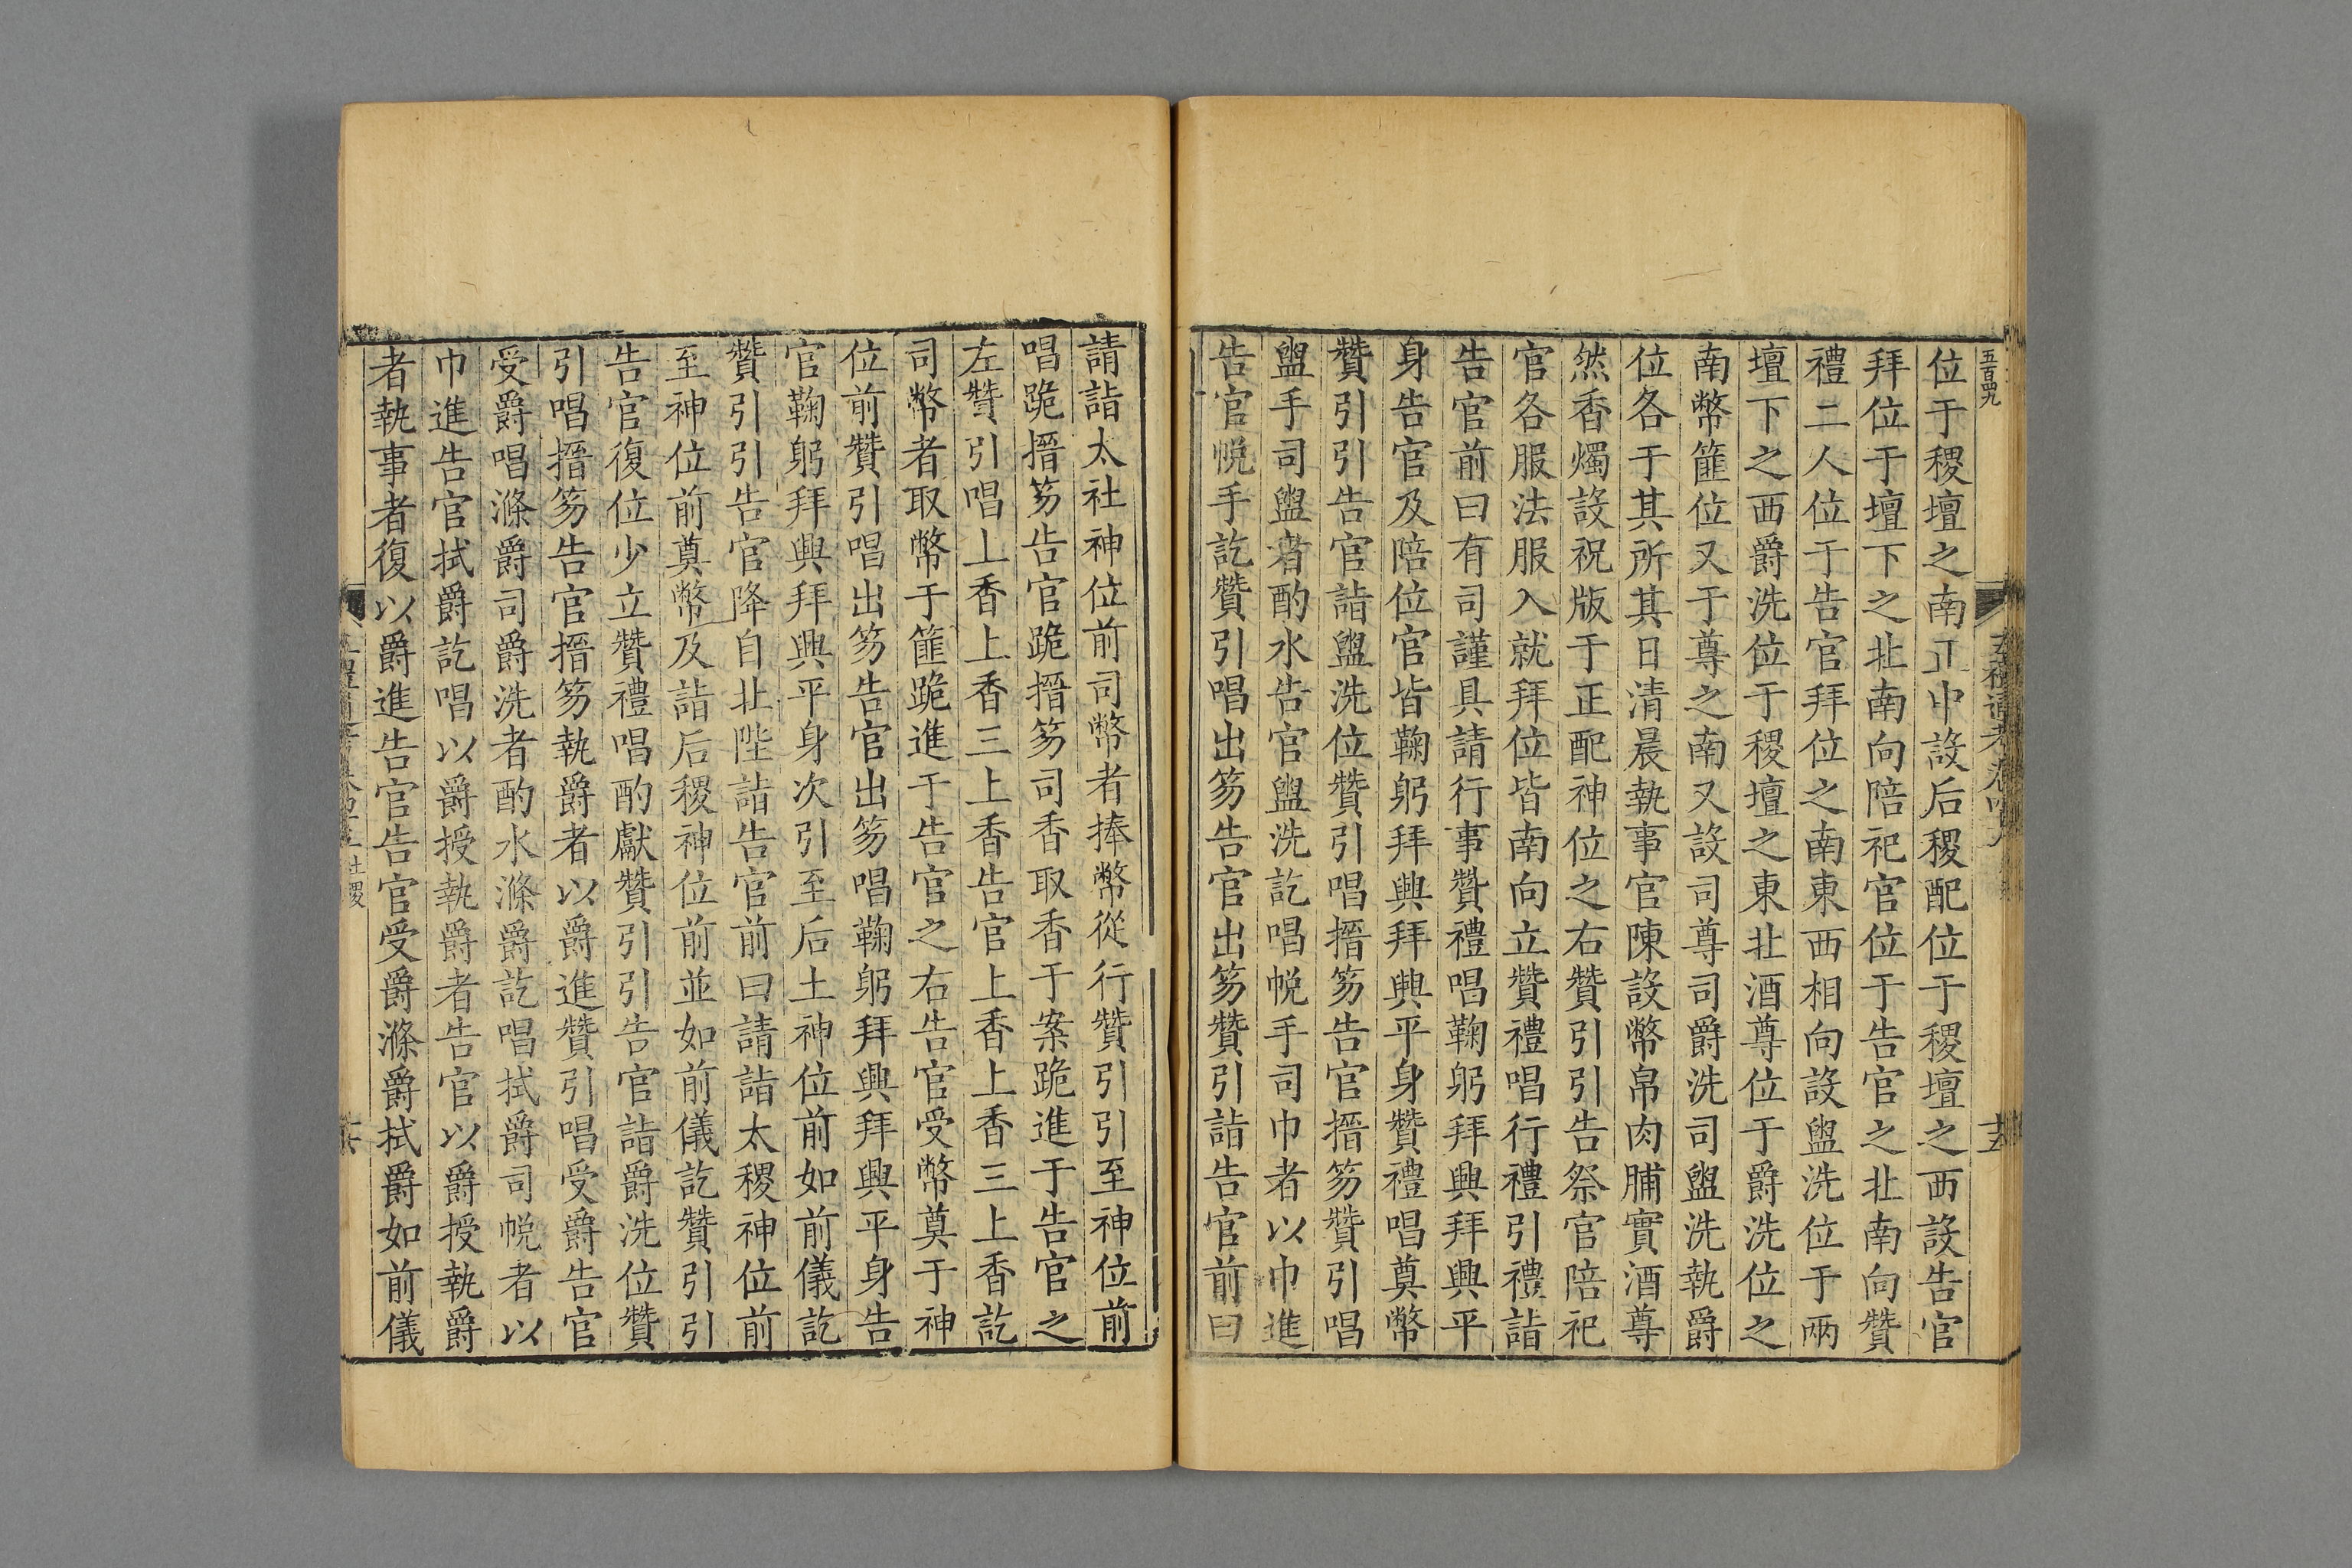 五百四九
位于稷壇之南正中設后稷配位于稷壇之西設告官
拜位于壇下之北南向陪祀官位于告官之北南向贊
禮二人位于告官拜位之南東西相向設盥洗位于兩
壇下之西爵洗位于稷壇之東北酒尊位于爵洗位之
南幣篚位又于尊之南又設司尊司爵洗司盥洗執爵
位各于其所其日清晨執事官陳設幣帛肉脯實酒尊
然香燭設祝版于正配神位之右贊引引告祭官陪祀
官各服法服入就拜位皆南向立贊禮唱行禮引禮詣
告官前曰有司謹具請行事贊禮唱鞠躬拜興拜興平
身告官及陪位官皆鞠躬拜興拜興平身贊禮唱奠幣
贊引引告官詣盥洗位贊引唱搢笏告官搢笏贊引唱
盥手司盥者酌水告官盥洗訖唱帨手司巾者以巾進
告官帨手訖贊引唱出笏告官出笏贊引詣告官前曰
請詣太社神位前司幣者捧幣從行贊引引至神位前
唱跪搢笏告官跪搢笏司香取香于案跪進于告官之
左贊引唱上香上香三上香告官上香上香三上香訖
司幣者取幣于篚跪進于告官之右告官受幣奠于神
位前贊引唱出笏告官出笏唱鞠躬拜興拜興平身告
官鞠躬拜興拜興平身次引至后土神位前如前儀訖
贊引引告官降自北陛詣告官前曰請詣太稷神位前
至神位前奠幣及詣后稷神位前並如前儀訖贊引引
告官復位少立贊禮唱酌獻贊引引告官詣爵洗位贊
引唱搢笏告官搢笏執爵者以爵進贊引唱受爵告官
受爵唱滌爵司爵洗者酌水滌爵訖唱拭爵司帨者以
巾進告官拭爵訖唱以爵授執爵者告官以爵授執爵
者執事者復以爵進告官告官受爵滌爵拭爵如前儀